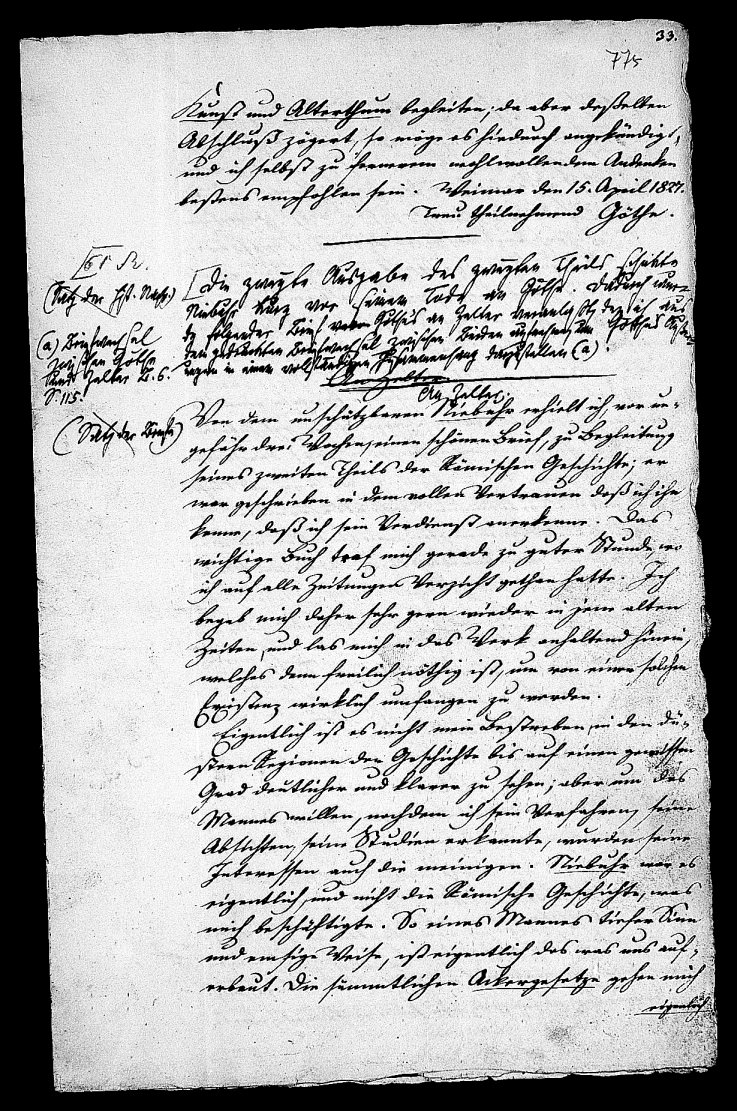 33.
775
Kunst und Alterthum begleiten; da aber desselben
Abschluß zögert, so möge es hiedurch angekündigt,
und ich selbst zu fernerem wohlwollendem Andenken
bestens empfohlen sein. Weimar den 15. April 1827.
Treu theilnehmend Göthe.
(Satz der Hist. Nachr.)
(a) Briefwechsel
zwischen Göthe
und Zelter B. 6.
S. 115.
(Satz der Briefe)
[Die zweyte Ausgabe des zweyten Theils schickte
Niebuhr kurz vor seinem Tode an Göthe. Dadurch wur-
de folgender Brief von Göthe an Zelter veranlaßt, den ich aus
dem gedruckten Briefwechsel zwischen Beiden aufnehme, um Göthes
in einem vollständigen Zusammenhang darzustellen (a).
An Zelter
An Zelter.
Von dem unschätzbaren Niebuhr erhielt ich, vor un-
gefähr drei Wochen, einen schönen Brief, zu Begleitung
seines zweiten Theils der Römischen Geschichte; er
war geschrieben in dem vollen Vertrauen daß ich ihn
kenne, daß ich sein Verdienst anerkenne. Das
wichtige Buch traf mich gerade zu guter Stunde, wo
ich auf alle Zeitungen Verzicht gethan hatte. Ich
begab mich daher sehr gern wieder in jene alten
Zeiten, und las mich in das Werk anhaltend hinein,
welches denn freilich nöthig ist, um von einer solchen
Existenz wirklich umfangen zu werden.
Eigentlich ist es nicht mein Bestreben, in den dü-
stern Regionen der Geschichte bis auf einen gewissen
Grad deutlicher und klarer zu sehen; aber um des
Mannes willen, nachdem ich sein Verfahren, seine
Absichten, seine Studien erkannte, wurden seine
Interessen auch die meinigen. Niebuhr war es
eigentlich, und nicht die Römische Geschichte, was
mich beschäftigte. So eines Mannes tiefer Sinn
und emsige Weise, ist eigentlich das was uns auf-
erbaut. Die sämmtlichen Ackergesetze gehen mich
eigentlich